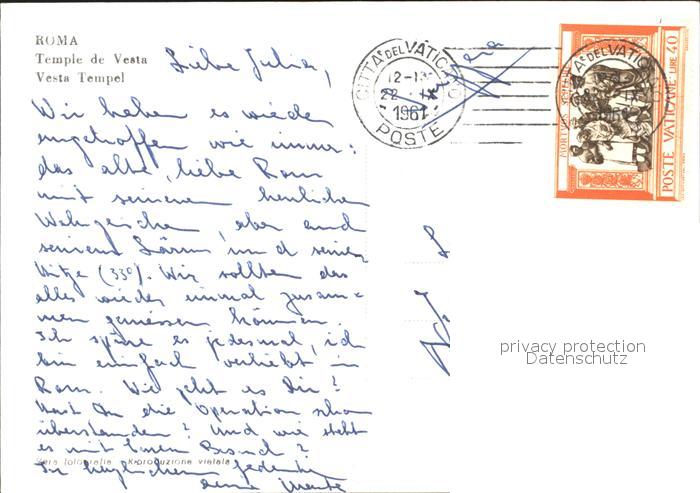 ROMA
Temple de Vesta
Vesta Tempel
Liebe Julia,
Wir haben es wieder
angetroffen wie immer:
das alte, liebe Rom
mit seinem herrlichen
aber auch
seinem Lärm und seiner
Hitze (33°). Wir sollten das
alles wieder einmal zusam=
men geniessen können.
Ich spüre es jedesmal, ich
bin einfach verliebt in
Rom. Wie geht es Dir?
Hast Du die Operation schon
überstanden? Und wie steht
es mit Eurem Besuch?
In herzlichem Gedenken
deine
Vera fotografia Riproduzione vietata
CITTÀ DEL VATICANO
12-13
22
1961
POSTE
POSTE VATICANE LIRE 40
privacy protection
Datenschutz